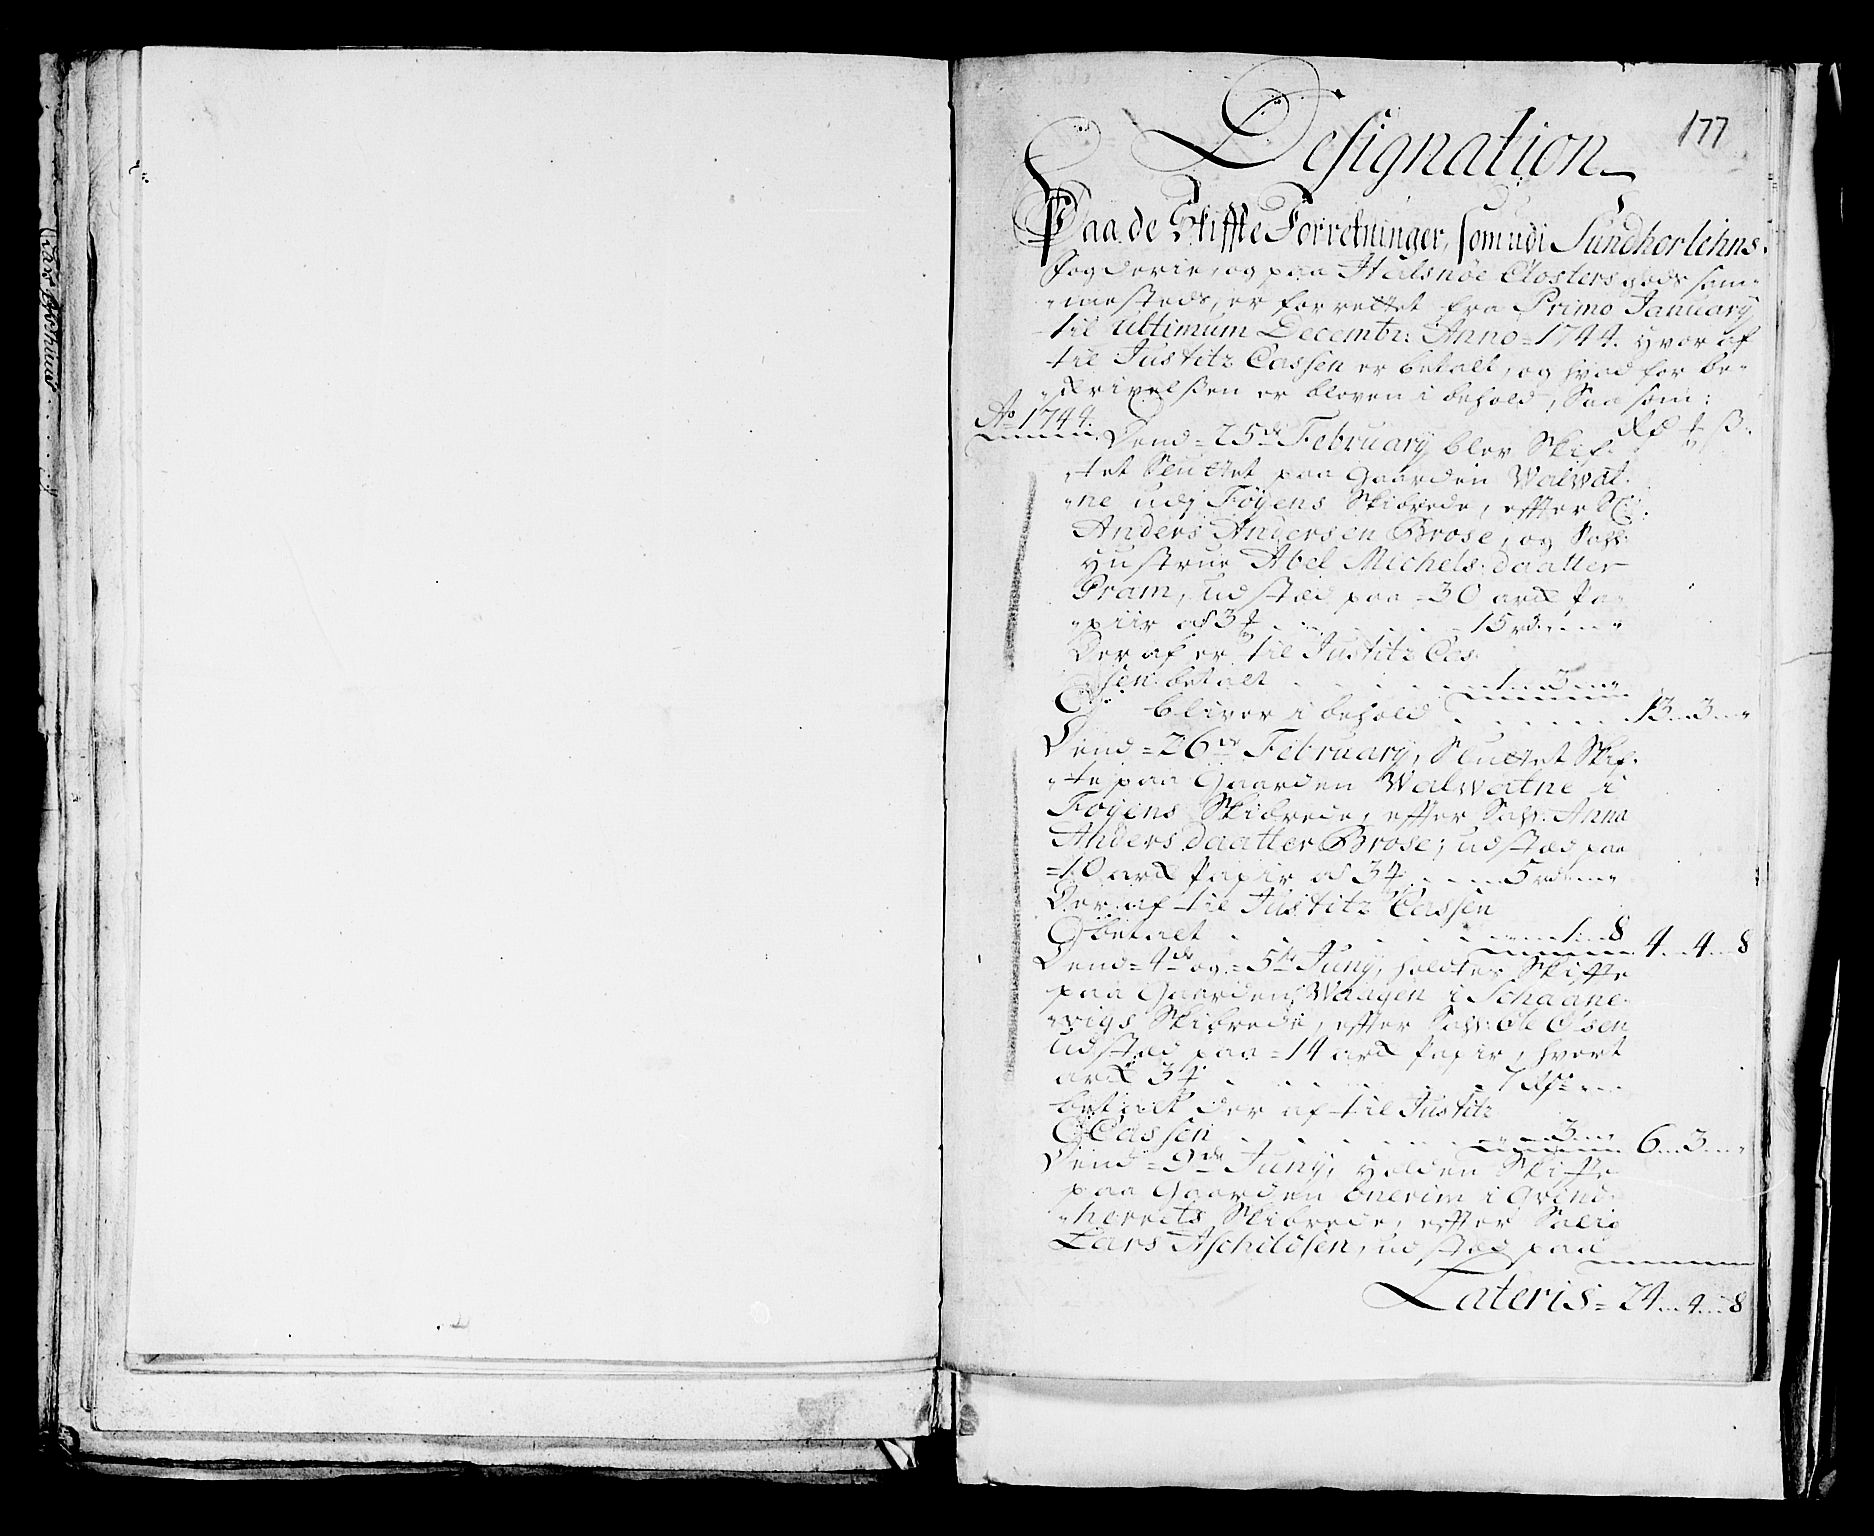 177
Designation
Paa de Skiffte Forretninger, som udi Sundhorlehns
Fogderie, og paa Halsnøe Closters gods sam-
mesteds, er forrettet fra Primo January
til ultimum Decembr: Anno 1744. hvor af
til Justitz Cassen er betalt, og hvad for be-
skrivelsen er bleven i behold, Saa som:
Ao 1744. Rd ß
Dend 25de February blev Skif-
tet Sluttet paa Gaarden Walvat-
ne udj Føyens Skibrede, effter Sl:
Anders Andersen Brose, og Sahl:
Hustrue Abel Michels daatter
Pram, udstæd paa 30 ark Pa-
piir a 3 15 rd
Der af er til Justitz Cas-
sen betalt 1 3
bliver i behold 13 3
Dend 26de February, Sluttet Skif-
te paa Gaarden Walvatne i
Føyens Skibrede, effter Sahl: Anna
Anders daatter Brose, udstæd paa
10 ark Papir a 3 5 rd
Der af til Justitz Cassen
betalt 1 8 4 4 8
Dend 4de og 5te Juny, holdes Skiffte
paa Gaarden Waagen i Schaane-
vigs Skibrede, effter Sahl: Ole Olsen
udstæd paa 14 ark Papir, hvert
ark 3 7
betalt der af til Justitz
Cassen 3 6 3
Dend 9de Juny, holden Skiffte
paa Gaarden Onerim i Grind-
herrits Skibrede, effter Salig
Lars Aschildsen, udstæd paa
Lateris 24 4 8